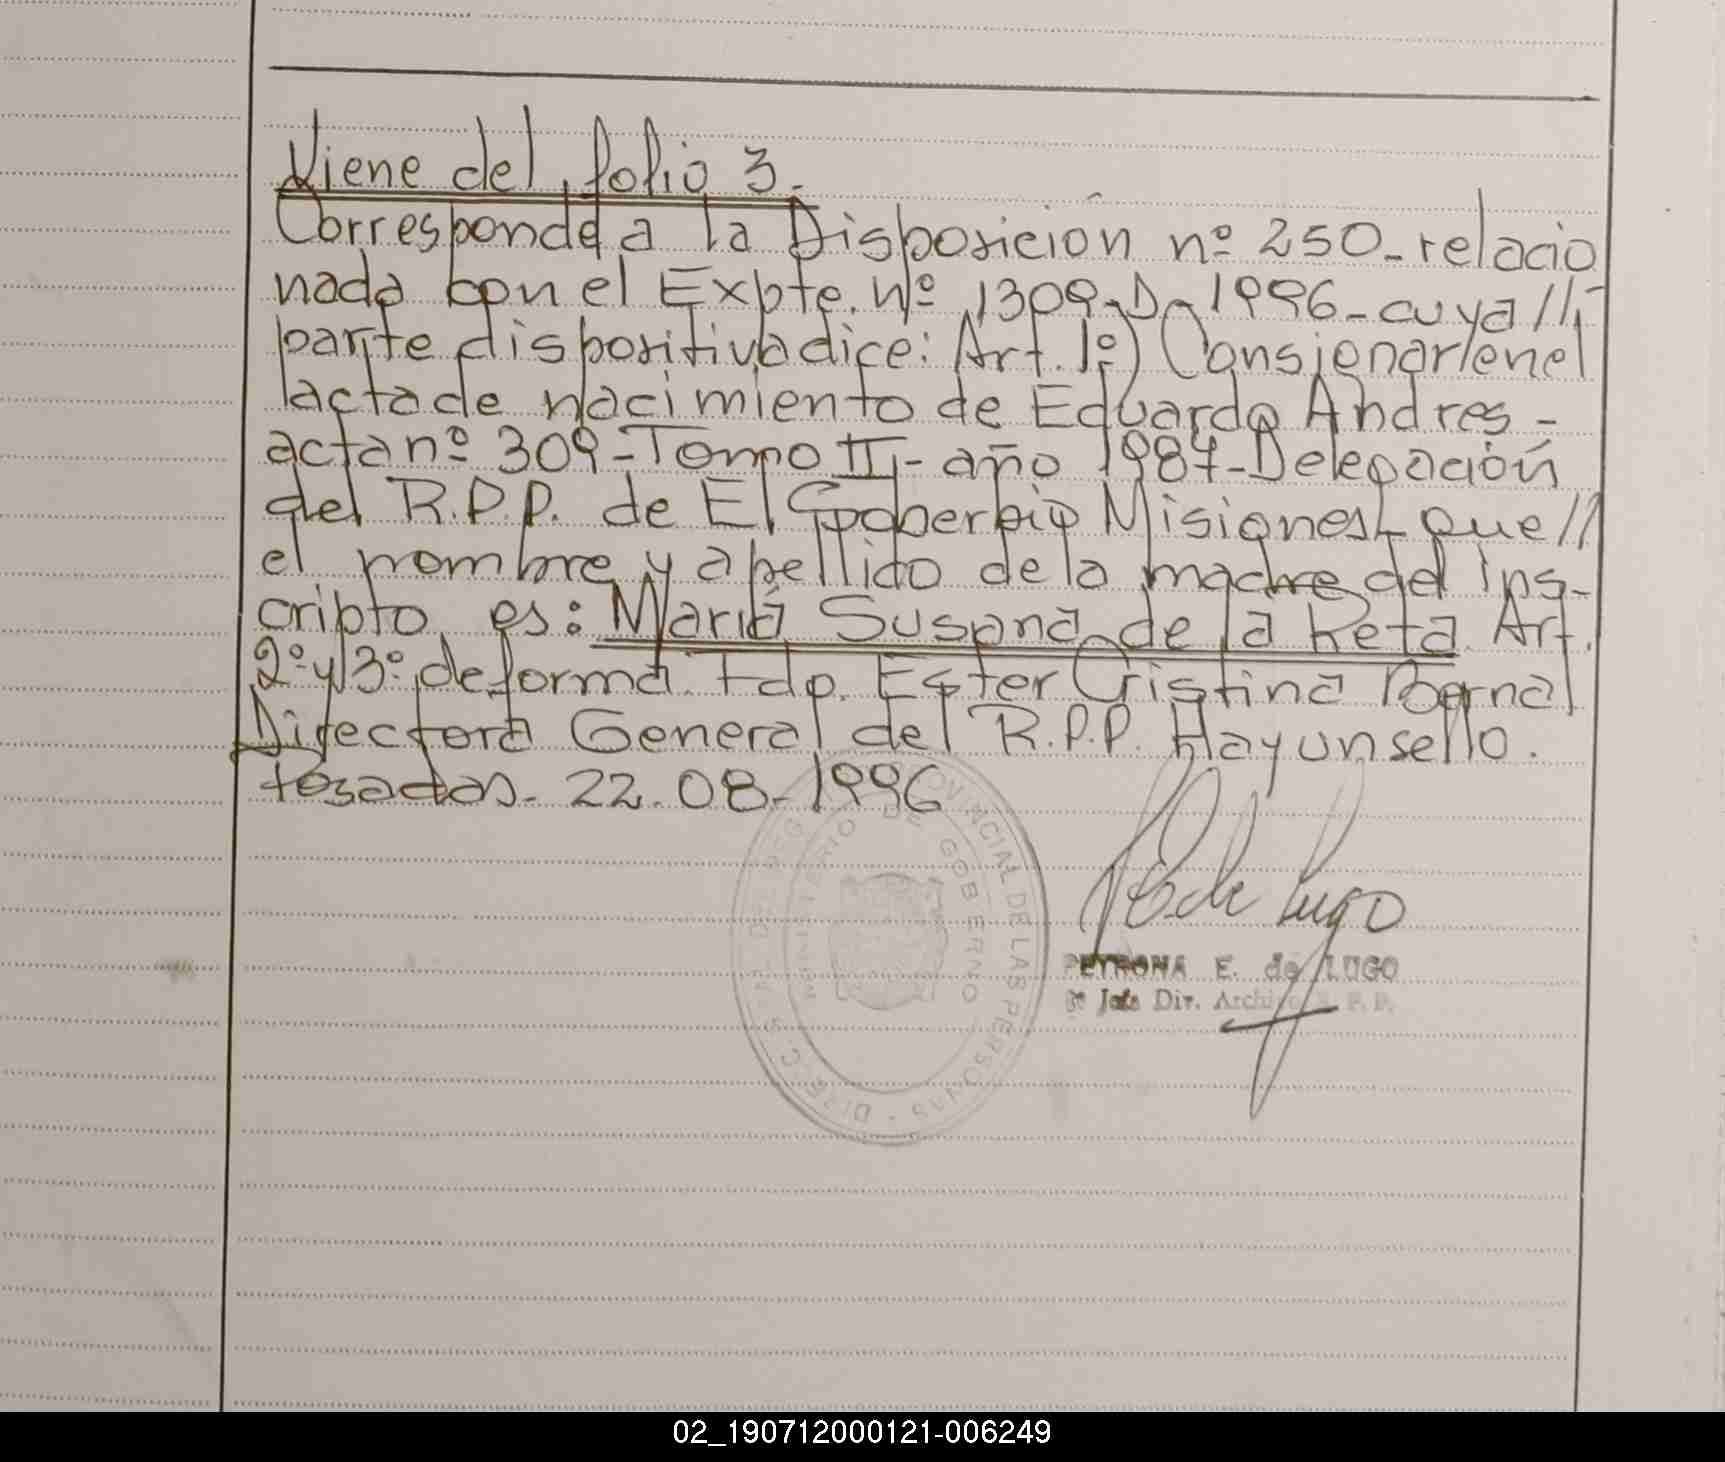 Viene del folio 3.
Corresponde a la Disposición nº 250-relacio
nada con el Expte. Nº 1309-D-1996-cuya//-
parte dispositiva dice: Art. 1º) Consignar en el
acta de nacimiento de Eduardo Andres -
acta nº 309-Tomo II- año 1984-Delegación
del R.P.P. de El Soberbio Misiones- que//
el nombre y apellido de la madre del ins-
cripto es: María Susana de la Reta Art.
2º y 3º de forma. Fdo. Ester Cristina Bernal
Directora General del R.P.P. Hay un sello.
Posadas- 22-08-1996
DIRECC PROVINCIAL DE LAS PERSONAS
MINISTERIO DE GOBIERNO
PETRONA E. de LUGO
Jefe Div. Archivo R. P. P.
02_190712000121-006249